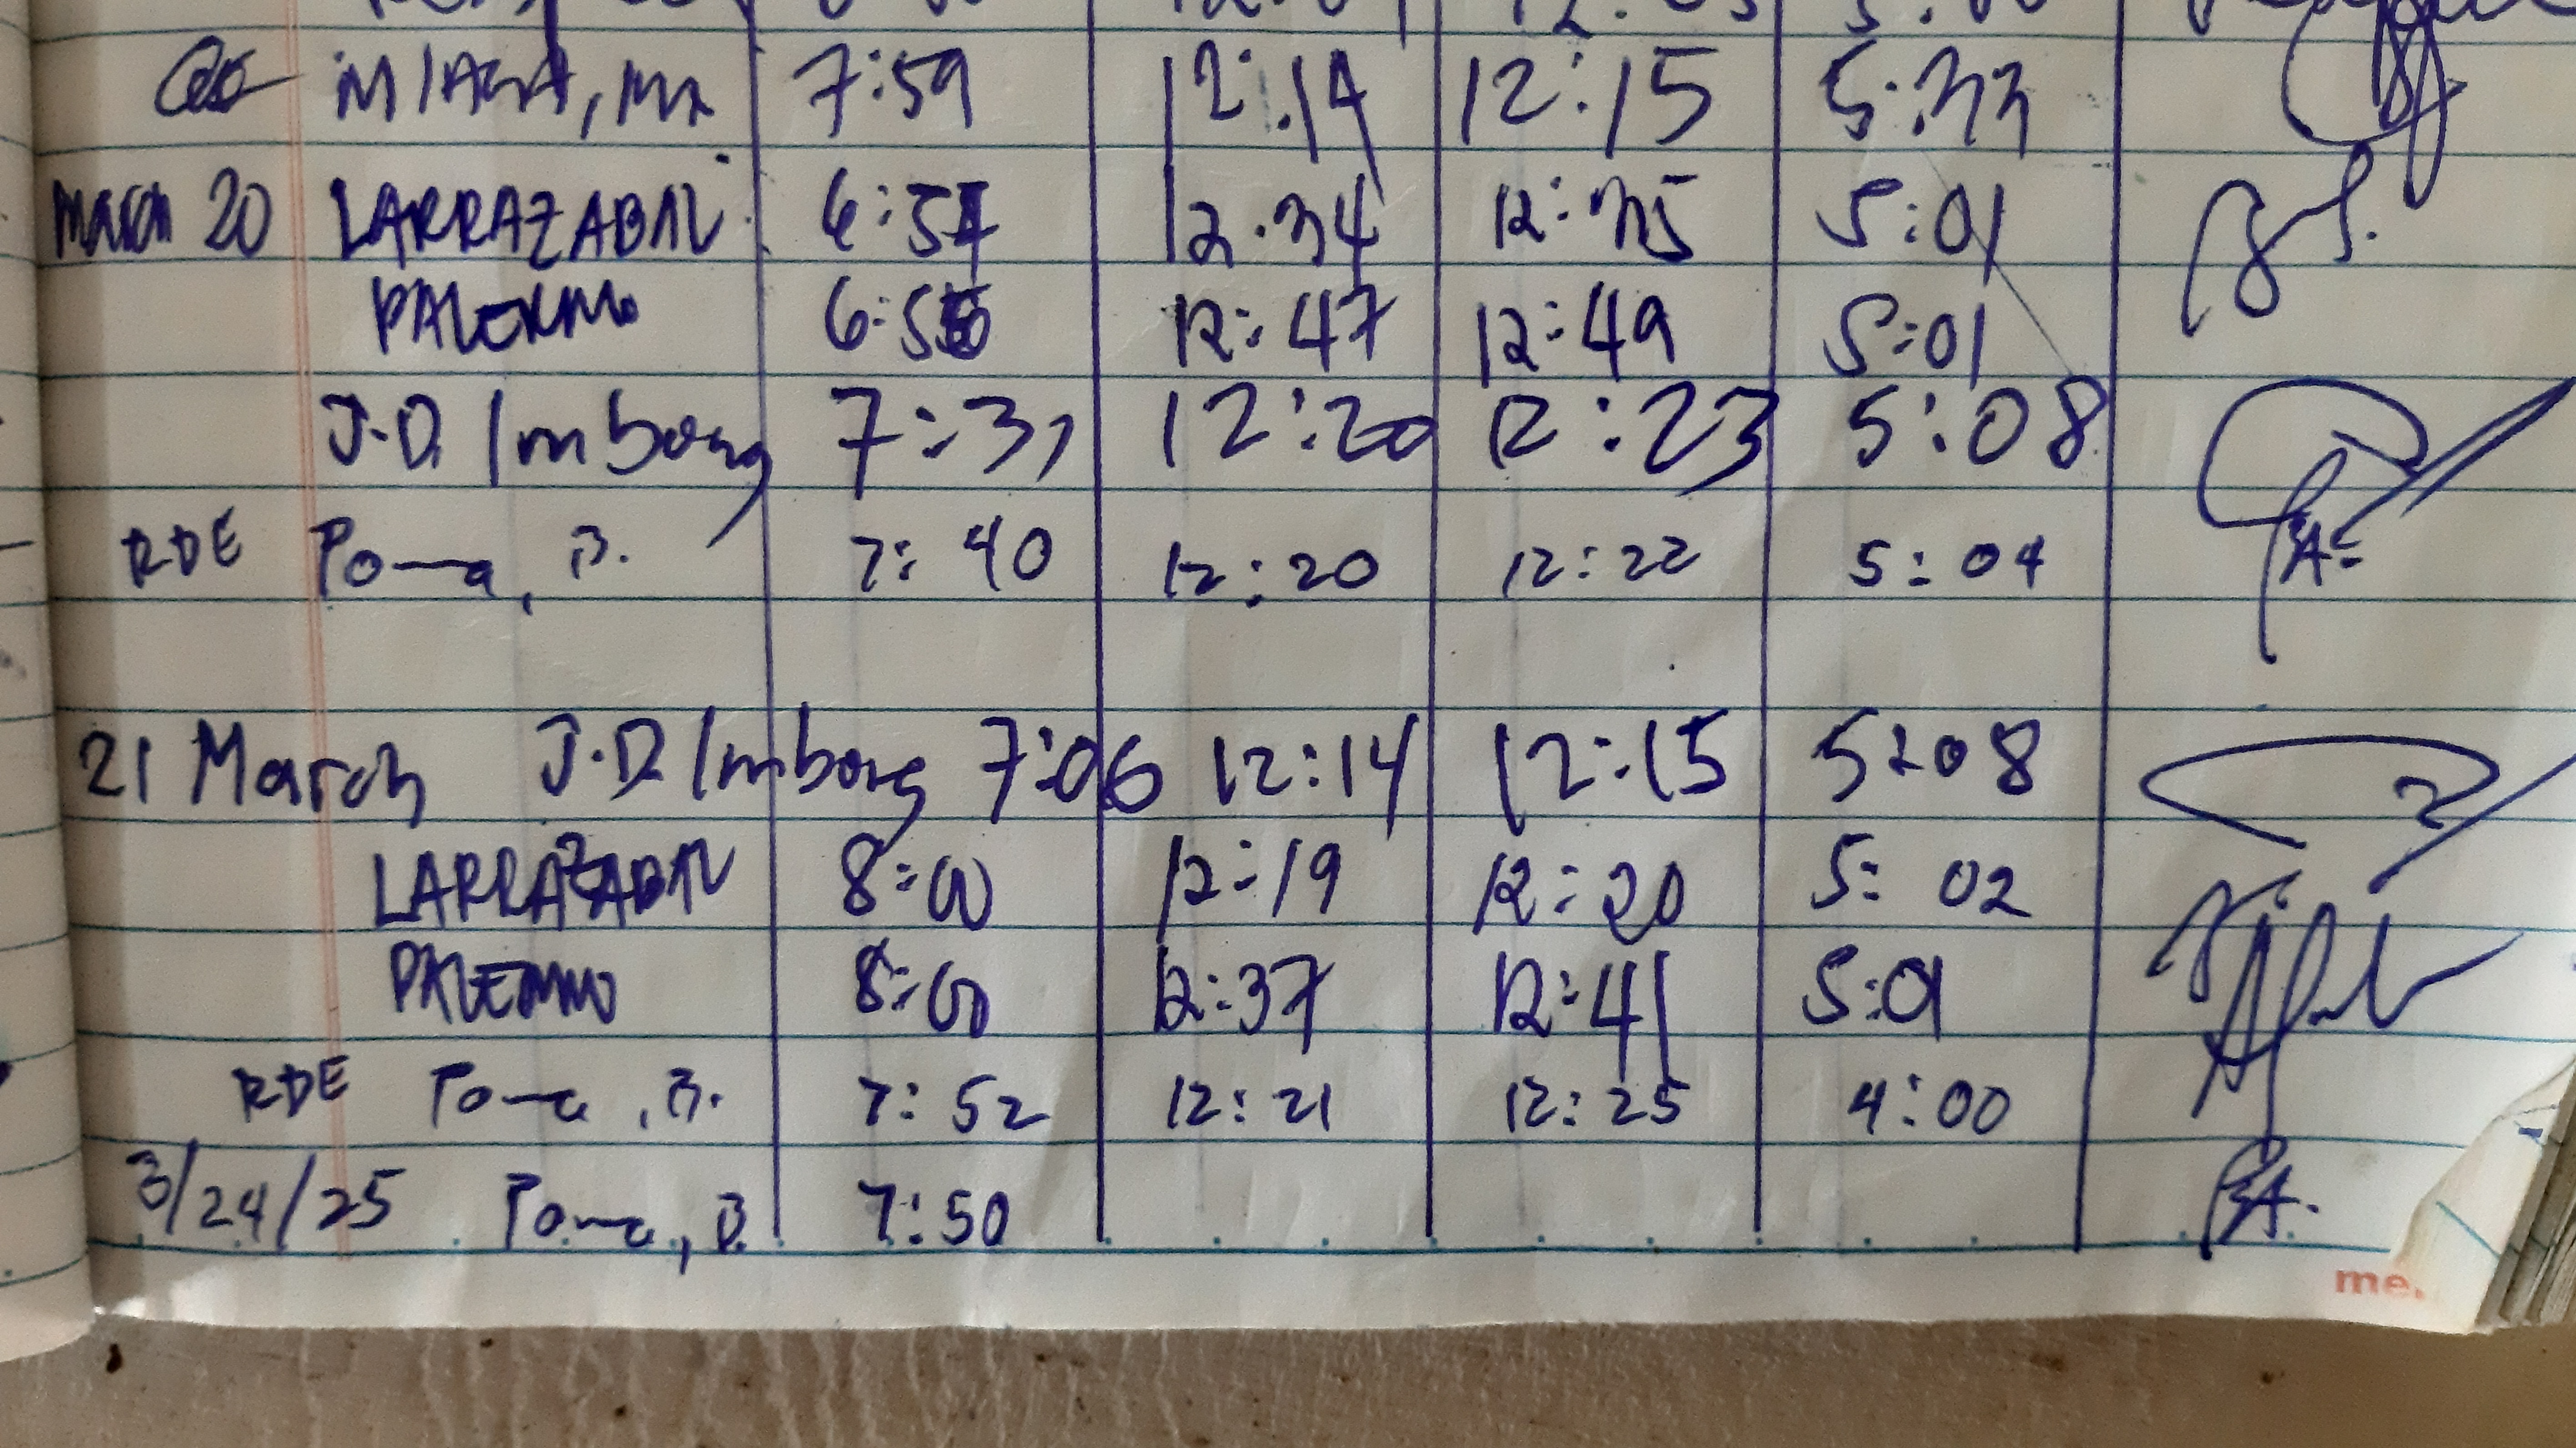 7:59 12:14 12:15 5:33
March 20 LARRAZABAL 6:54 12:34 12:35 5:01
PALERMO 6:56 12:47 12:49 5:01
J.D. Imbong 7:31 12:20 12:23 5:08
RDE Poma, B. 7:40 12:20 12:22 5:04
21 March J.D. Imbong 7:06 12:14 12:15 5:08
LARRAZABAL 8:00 12:19 12:20 5:02
PALERMO 8:00 12:37 12:41 5:01
RDE Poma, B. 7:52 12:21 12:25 4:00
3/24/25 Poma, B. 7:50